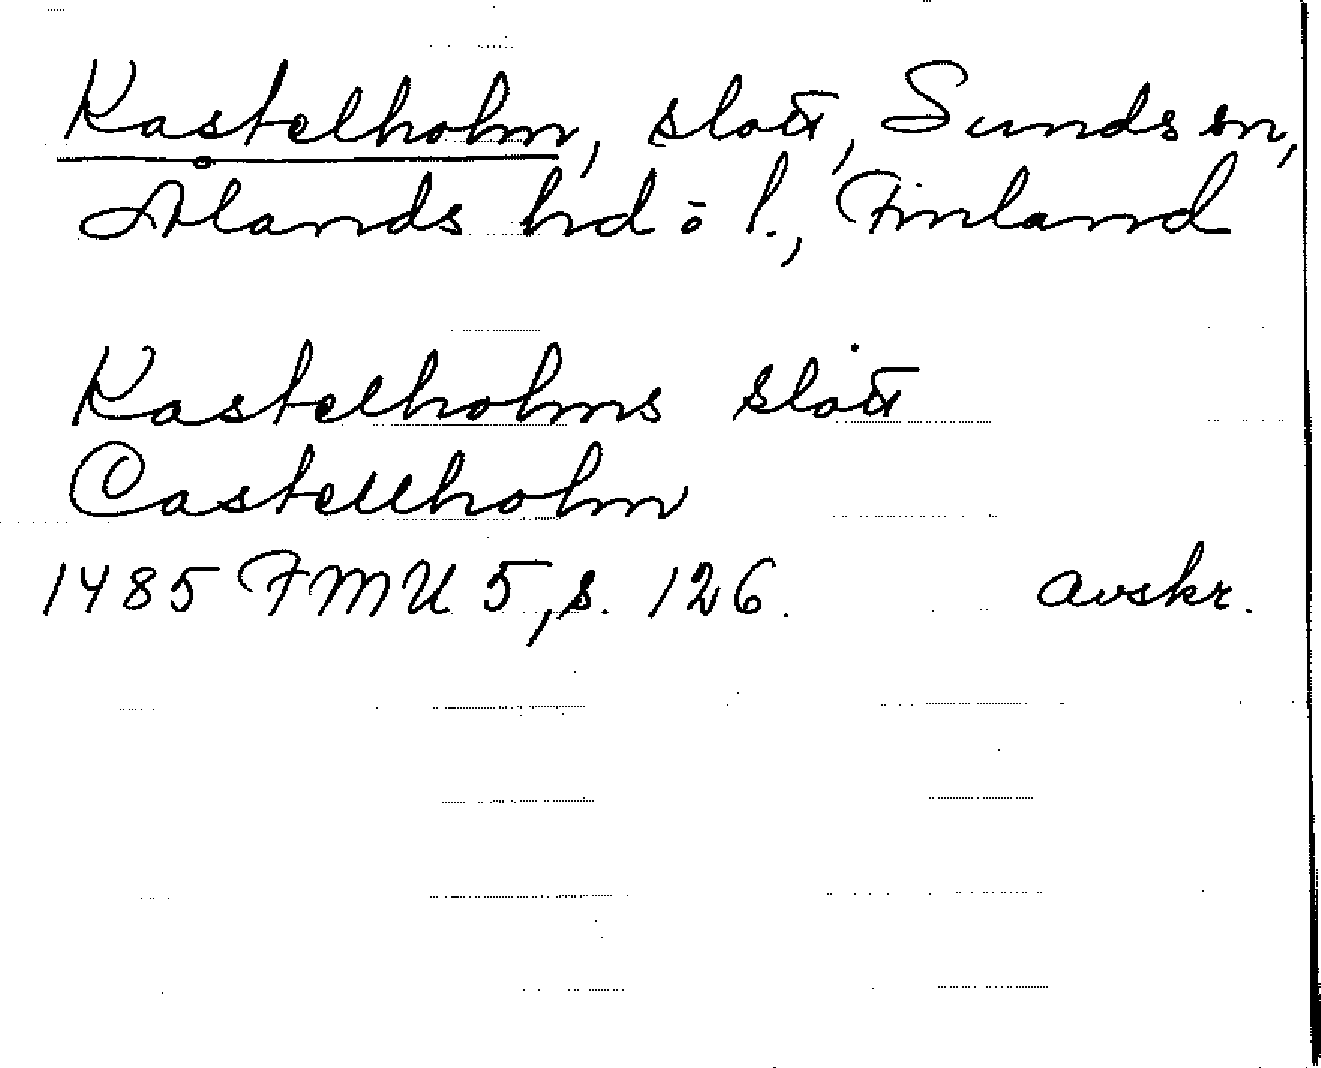 Kastelholm, slott, Sunds sn,
Ålands hd o l., Finland
Kastelholms slott
Castellholm
1485 FMU 5, s. 126. avskr.